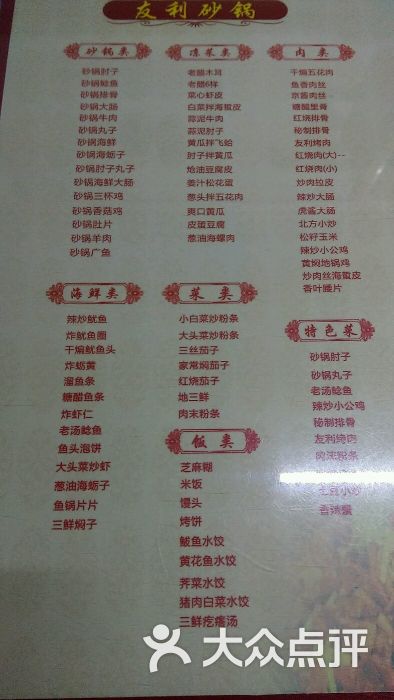 友利砂锅
砂锅类
砂锅肘子
砂锅鲶鱼
砂锅排骨
砂锅大肠
砂锅牛肉
砂锅丸子
砂锅海鲜
砂锅海蛎子
砂锅肘子丸子
砂锅海鲜大肠
砂锅三杯鸡
砂锅香菇鸡
砂锅肚片
砂锅羊肉
砂锅广鱼
凉菜类
老醋木耳
老醋6样
菜心虾皮
白菜拌海蜇皮
蒜泥牛肉
蒜泥肘子
黄瓜拌飞蛤
肘子拌黄瓜
炝油豆腐皮
姜汁松花蛋
葱头拌五花肉
爽口黄瓜
皮蛋豆腐
葱油海螺肉
肉类
干煸五花肉
鱼香肉丝
京酱肉丝
糖醋里骨
红烧排骨
秘制排骨
友利烤肉
红烧肉(大)--
红烧肉(小)
炒肉拉皮
辣炒大肠
虎酱大肠
北方小炒
松籽玉米
辣炒小公鸡
黄焖地锅鸡
炒肉丝海蜇皮
香叶腰片
海鲜类
辣炒鱿鱼
炸鱿鱼圈
干煸鱿鱼头
炸蛎黄
溜鱼条
糖醋鱼条
炸虾仁
老汤鲶鱼
鱼头泡饼
大头菜炒虾
葱油海蛎子
鱼锅片片
三鲜焖子
菜类
小白菜炒粉条
大头菜炒粉条
三丝茄子
家常焖茄子
红烧茄子
地三鲜
肉末粉条
饭类
芝麻糊
米饭
馒头
烤饼
鲅鱼水饺
黄花鱼水饺
荠菜水饺
猪肉白菜水饺
三鲜疙瘩汤
特色菜
砂锅肘子
砂锅丸子
老汤鲶鱼
辣炒小公鸡
秘制排骨
友利烤肉
肉沫粉条
土豆小炒
香辣蟹
大众点评